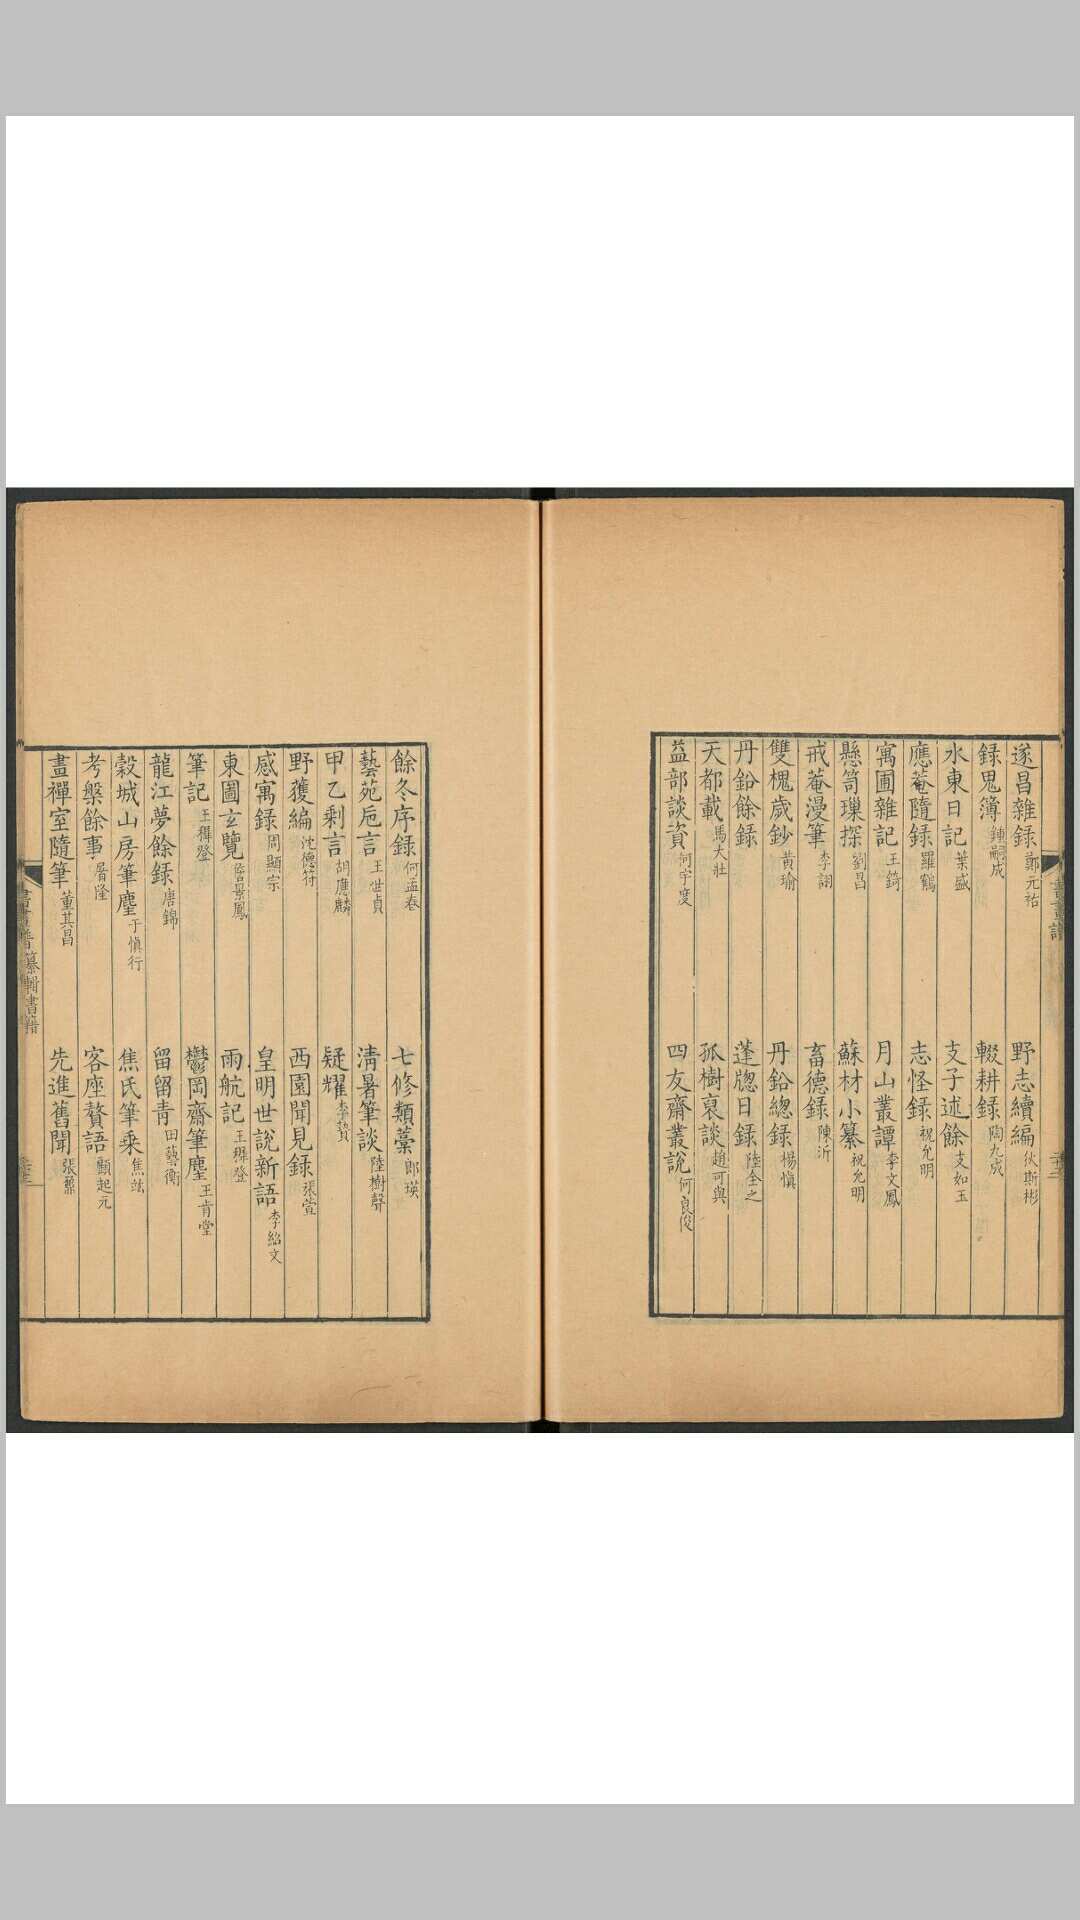 遂昌雜録 鄭元祐 野志續編 伙斯彬
録鬼簿 鍾嗣成 輟耕録 陶九成
水東日記 葉盛 支子述餘 支如玉
應菴隨録 羅鶴 志怪録 祝允明
寓圃雜記 王錡 月山叢譚 李文鳳
懸笥瑣探 劉昌 蘇材小纂 祝允明
戒菴漫筆 李詡 畜德録 陳沂
雙槐歲鈔 黃瑜 丹鉛總録 楊慎
丹鉛餘録 蓬牕日録 陸全之
天都載 馬大壯 孤樹裒談 趙可與
益部談資 何宇度 四友齋叢說 何良俊
餘冬序録 何孟春 七修類藁 郎瑛
藝苑巵言 王世貞 清暑筆談 陸樹聲
甲乙剩言 胡應麟 疑耀 李贄
野獲編 沈德符 西園聞見録 張萱
感寓録 周顯宗 皇明世說新語 李紹文
東圖玄覽 詹景鳳 雨航記 王穉登
筆記 王穉登 鬱岡齋筆麈 王肯堂
龍江夢餘録 唐錦 留留青 田藝衡
穀城山房筆麈 于慎行 焦氏筆乘 焦竑
考槃餘事 屠隆 客座贅語 顧起元
畫禪室隨筆 董其昌 先進舊聞 張鼐
書畫譜 纂輯書籍